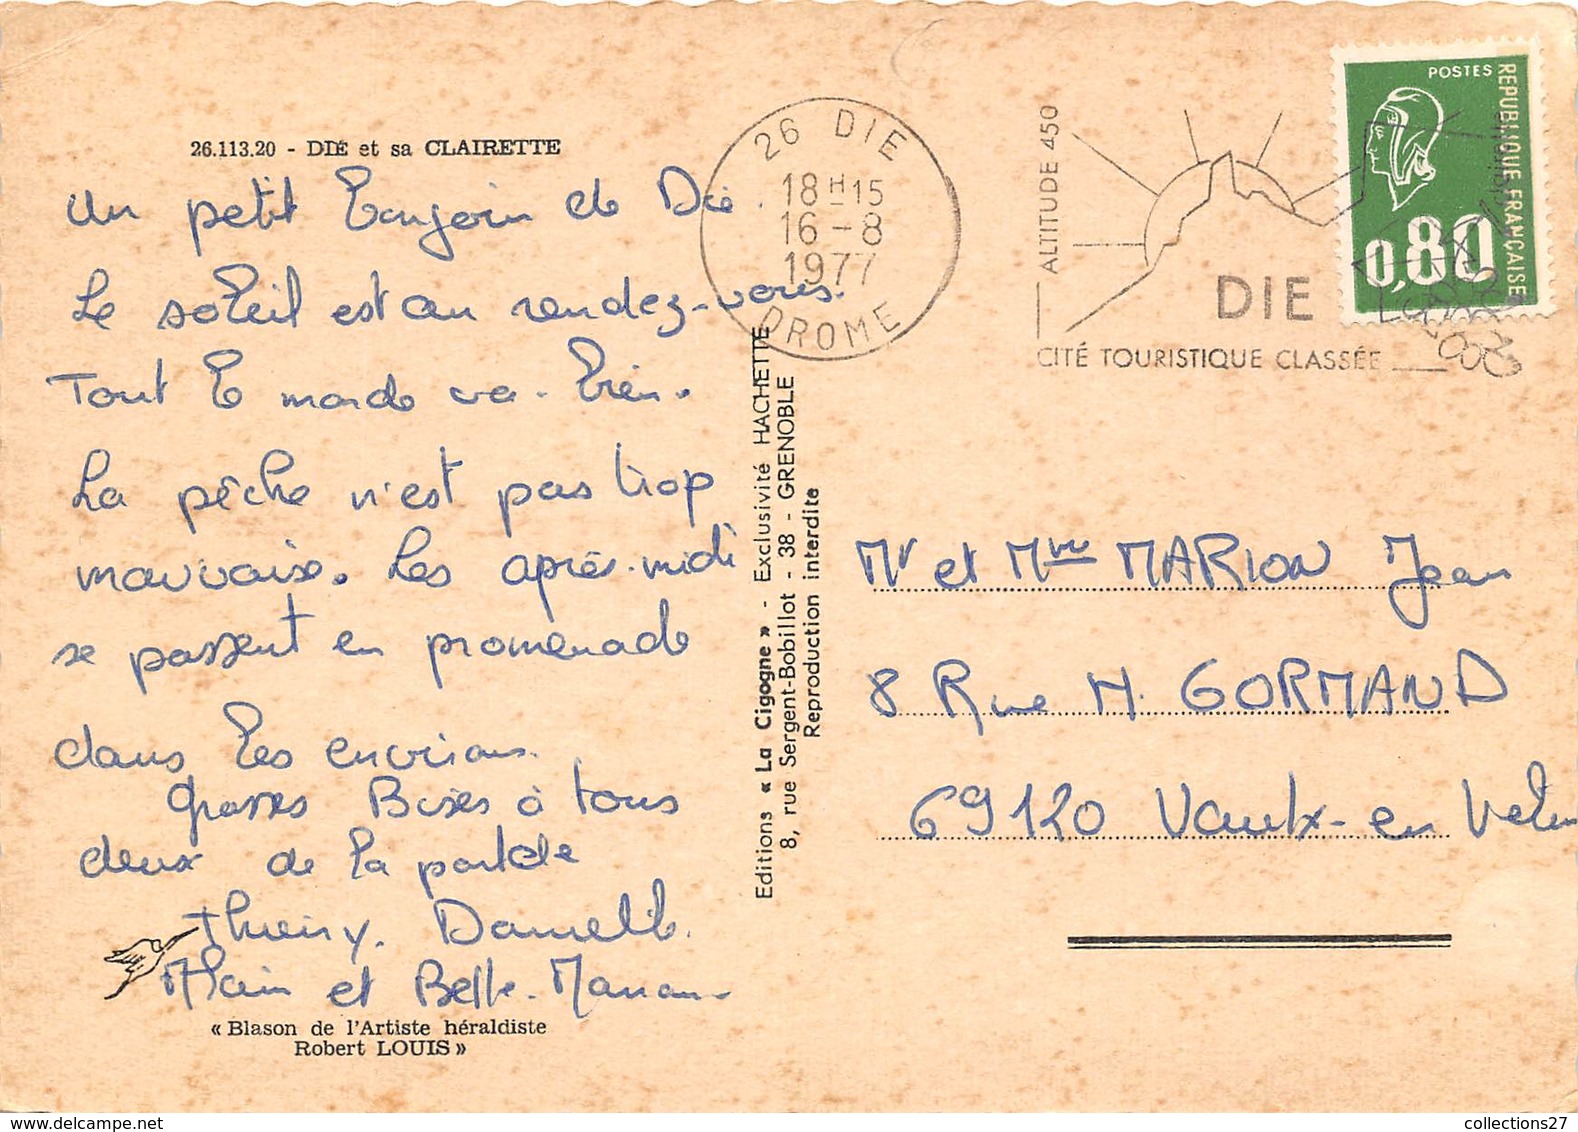 26.113.20 - DIE et sa CLAIRETTE
un petit bonjour de Die.
Le soleil est au rendez-vous.
Tout le monde va bien.
La pêche n'est pas trop
mauvaise. Les après-midi
se passent en promenade
dans les environs.
Grosses Bises à tous
deux de la part de
Thierry. Danielle.
Alain et Belle-Maman
« Blason de l'Artiste héraldiste
Robert LOUIS »
Editions « La Cigogne » - Exclusivité HACHETTE
8, rue Sergent-Bobillot - 38 - GRENOBLE
Reproduction interdite
26 DIE
18H15
16-8
1977
DROME
ALTITUDE 450
DIE
CITÉ TOURISTIQUE CLASSÉE
POSTES
REPUBLIQUE FRANÇAISE
0,80
Mr et Mme MARION Jean
8 Rue M. GORMAND
69120 Vaulx-en Velin
collections27